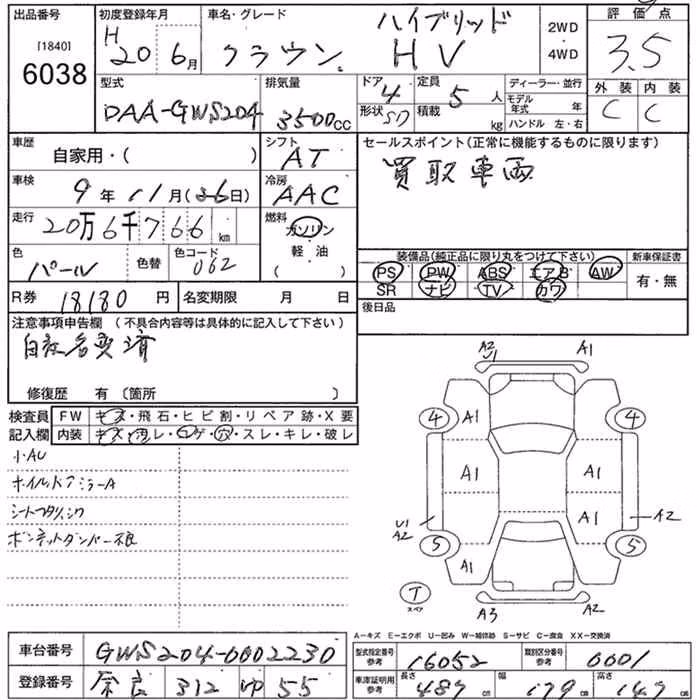 出品番号 [1840] 6038
初度登録年月 H20 6月
車名・グレード ハイブリッド
クラウン HV
2WD
4WD
評価点 3.5
外装 C 内装 C
型式 DAA-GWS204
排気量 3500CC
ドア 4
形状 SD
定員 5人
積載 kg
ディーラー・並行
モデル年式 年
ハンドル 左・右
車歴 自家用・( )
シフト AT
車検 9年11月(26日)
冷房 AAC
走行 20万6千766km
燃料 ガソリン
軽油
( )
色 パール 色替
色コード 062
R券 18180円
名変期限 月 日
セールスポイント(正常に機能するものに限ります)
買取車両
装備品(純正品に限り丸をつけて下さい)
PS PW ABS エアB AW
SR ナビ TV カワ
新車保証書
有・無
後日品
注意事項申告欄 (不具合内容等は具体的に記入して下さい)
自社名変済
修復歴 有 〔箇所 〕
検査員記入欄
FW キズ・飛石・ヒビ割・リペア跡・X要
内装 キズ・汚レ・コゲ・穴・スレ・キレ・破レ
小AU
ホイル、ドアミラーA
ボンネットダンパー不良
A2
U1
A1
4 A1 4
A1 A1
A1
U1
A2
A2
5 A1 5
T
スペア
A3 A2
A-キズ E-エクボ U-凹み W-補修跡 S-サビ C-腐食 XX-交換済
車台番号 GWS204-0002230
登録番号 奈良 312 ゆ 55
型式指定番号 参考 16052
類別区分番号 参考 0001
車庫証明用 参考
長さ 487cm
幅 179cm
高さ 147cm